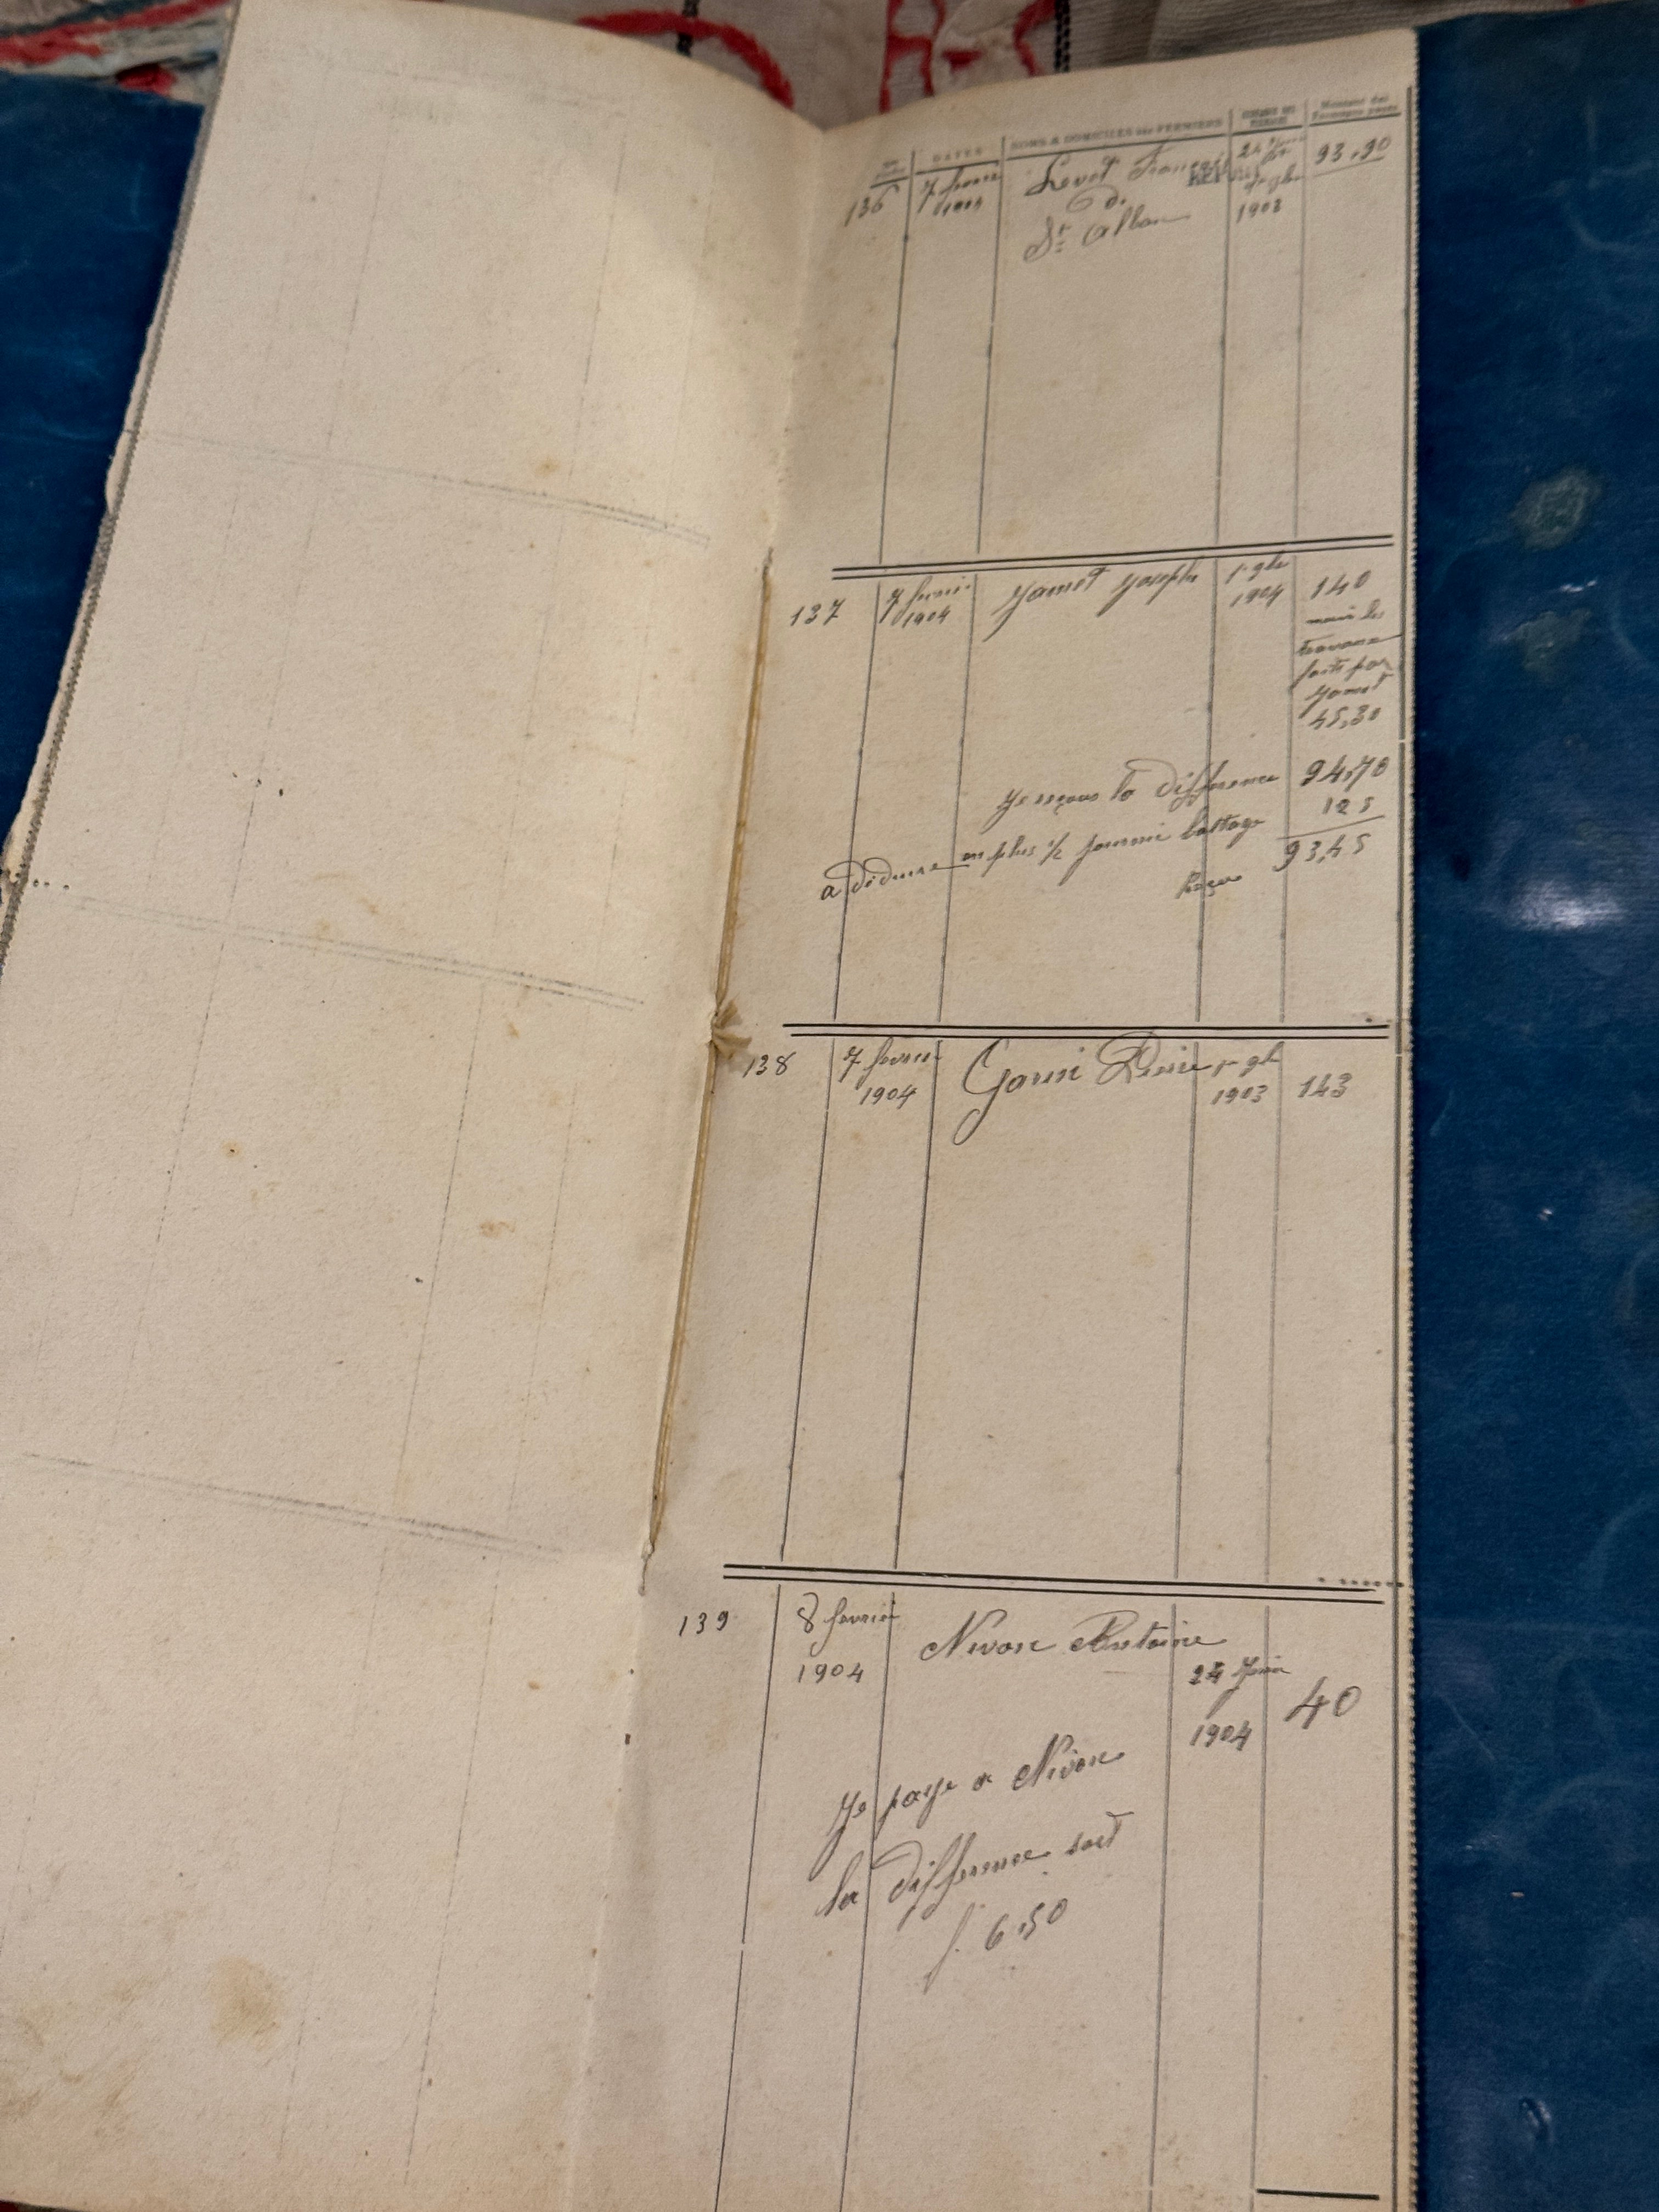 DATES
NOMS & DOMICILES des FERMIERS
Montant des
Fermages payés
136
7 février
1904
Levet François
St Alban
1903
93,90
137
7 février
1904
Jamet Joseph
1904
140
moins les
travaux
faits par
Jamet
45,30
Je reçois la différence
94,70
a déduire en plus ½ journée battage
125
93,45
Reçu
138
7 février
1904
1903
143
139
8 février
1904
Nivon Antoine
24 Juin
1904
40
Je paye a Nivon
la différence soit
f. 6,50